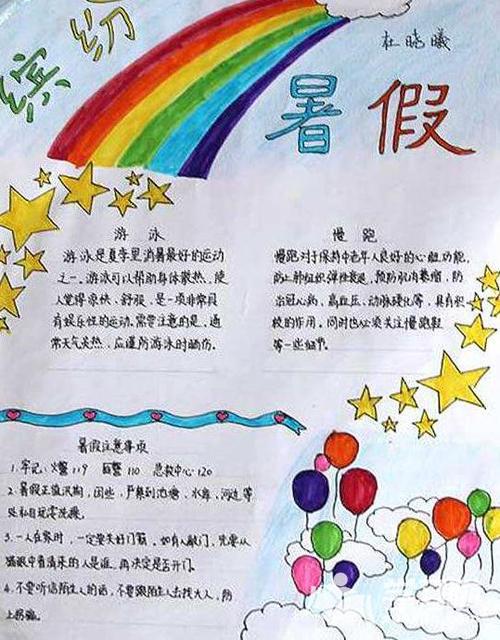 缤纷
杜晓曦
暑假
游 泳
游泳是夏季里消暑最好的运动
之一。游泳可以帮助身体散热，使
人觉得凉快、舒服，是一项非常具
有娱乐性的运动。需要注意的是，通
常天气炎热，应谨防游泳时晒伤。
慢 跑
慢跑对于保持中老年人良好的心脏功能，
防止肺组织弹性衰退，预防肌肉萎缩，防
治冠心病、高血压、动脉硬化等，具有积
极的作用。同时也必须关注慢跑鞋
等一些细节。
暑假注意事项
1. 牢记：火警119 匪警110 急救中心120
2. 暑假正值汛期，因此，严禁到池塘、水库、河边等
处私自玩耍洗澡。
3. 一人在家时，一定要关好门窗。如有人敲门，先要从
猫眼中看清来的人是谁，再决定是否开门。
4. 不要听信陌生人的话，不要跟陌生人去找大人，防
上拐骗。